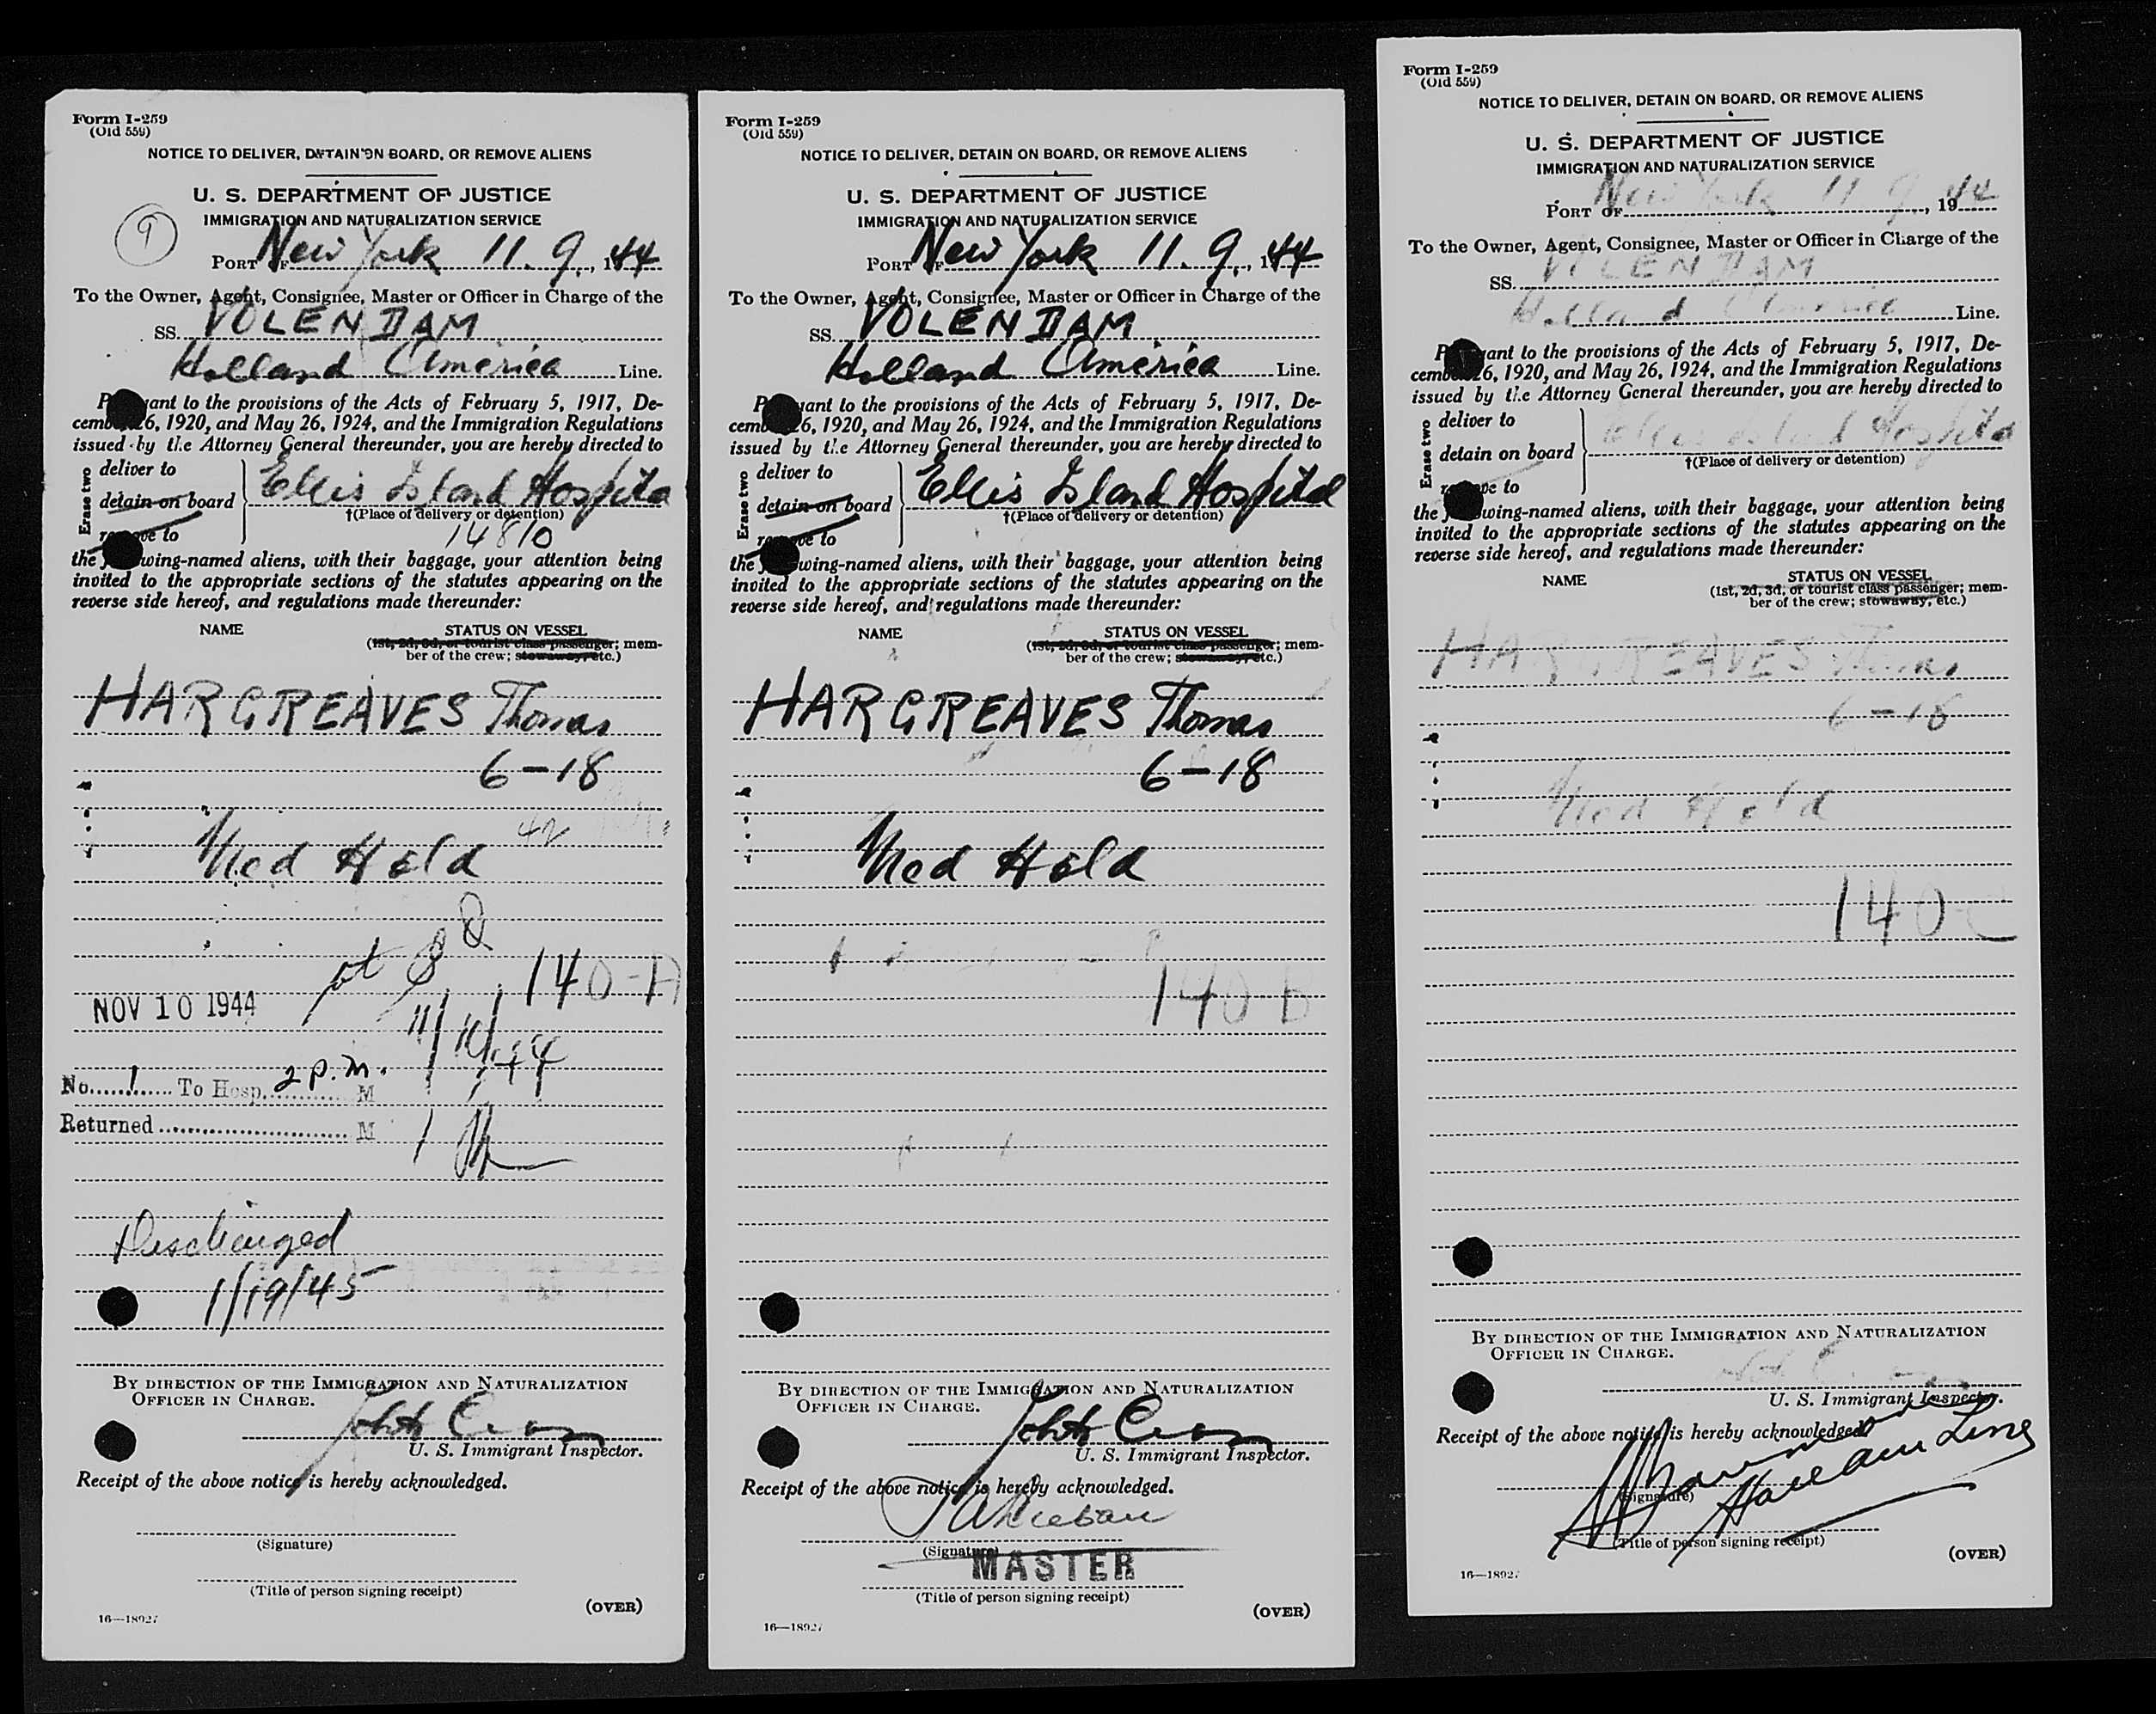 Form I-259
(Old 559)
NOTICE TO DELIVER, DETAIN ON BOARD, OR REMOVE ALIENS
U. S. DEPARTMENT OF JUSTICE
IMMIGRATION AND NATURALIZATION SERVICE
9
PORT OF New York 11.9., 1944
To the Owner, Agent, Consignee, Master or Officer in Charge of the
SS. VOLENDAM
Holland America Line.
Pursuant to the provisions of the Acts of February 5, 1917, De-
cember 26, 1920, and May 26, 1924, and the Immigration Regulations
issued by the Attorney General thereunder, you are hereby directed to
Erase two
deliver to
detain on board
remove to
Ellis Island Hospital
†(Place of delivery or detention)
14810
the following-named aliens, with their baggage, your attention being
invited to the appropriate sections of the statutes appearing on the
reverse side hereof, and regulations made thereunder:
NAME STATUS ON VESSEL
(1st, 2d, 3d, or tourist class passenger; mem-
ber of the crew; stowaway, etc.)
HARGREAVES Thomas
6-18
42
Med Hold
140-A
NOV 10 1944
11/10/44
No. 1 To Hosp. 2 P.M. M
Returned M
Discharged
1/19/45
BY DIRECTION OF THE IMMIGRATION AND NATURALIZATION
OFFICER IN CHARGE.
U. S. Immigrant Inspector.
Receipt of the above notice is hereby acknowledged.
(Signature)
(Title of person signing receipt)
(OVER)
16—18927
Form I-259
(Old 559)
NOTICE TO DELIVER, DETAIN ON BOARD, OR REMOVE ALIENS
U. S. DEPARTMENT OF JUSTICE
IMMIGRATION AND NATURALIZATION SERVICE
PORT OF New York 11.9., 1944
To the Owner, Agent, Consignee, Master or Officer in Charge of the
SS. VOLENDAM
Holland America Line.
Pursuant to the provisions of the Acts of February 5, 1917, De-
cember 26, 1920, and May 26, 1924, and the Immigration Regulations
issued by the Attorney General thereunder, you are hereby directed to
Erase two
deliver to
detain on board
remove to
Ellis Island Hospital
†(Place of delivery or detention)
the following-named aliens, with their baggage, your attention being
invited to the appropriate sections of the statutes appearing on the
reverse side hereof, and regulations made thereunder:
NAME STATUS ON VESSEL
(1st, 2d, 3d, or tourist class passenger; mem-
ber of the crew; stowaway, etc.)
HARGREAVES Thomas
6-18
Med Hold
140 B
BY DIRECTION OF THE IMMIGRATION AND NATURALIZATION
OFFICER IN CHARGE.
U. S. Immigrant Inspector.
Receipt of the above notice is hereby acknowledged.
(Signature)
MASTER
(Title of person signing receipt)
(OVER)
16—18927
Form I-259
(Old 559)
NOTICE TO DELIVER, DETAIN ON BOARD, OR REMOVE ALIENS
U. S. DEPARTMENT OF JUSTICE
IMMIGRATION AND NATURALIZATION SERVICE
PORT OF New York 11 9, 1944
To the Owner, Agent, Consignee, Master or Officer in Charge of the
SS. VOLENDAM
Holland America Line.
Pursuant to the provisions of the Acts of February 5, 1917, De-
cember 26, 1920, and May 26, 1924, and the Immigration Regulations
issued by the Attorney General thereunder, you are hereby directed to
Erase two
deliver to
detain on board
remove to
Ellis Island Hospital
†(Place of delivery or detention)
the following-named aliens, with their baggage, your attention being
invited to the appropriate sections of the statutes appearing on the
reverse side hereof, and regulations made thereunder:
NAME STATUS ON VESSEL
(1st, 2d, 3d, or tourist class passenger; mem-
ber of the crew; stowaway, etc.)
HARGREAVES Thomas
6-18
Med Hold
140-C
BY DIRECTION OF THE IMMIGRATION AND NATURALIZATION
OFFICER IN CHARGE.
U. S. Immigrant Inspector.
Receipt of the above notice is hereby acknowledged.
(Signature)
(Title of person signing receipt)
(OVER)
16—18927